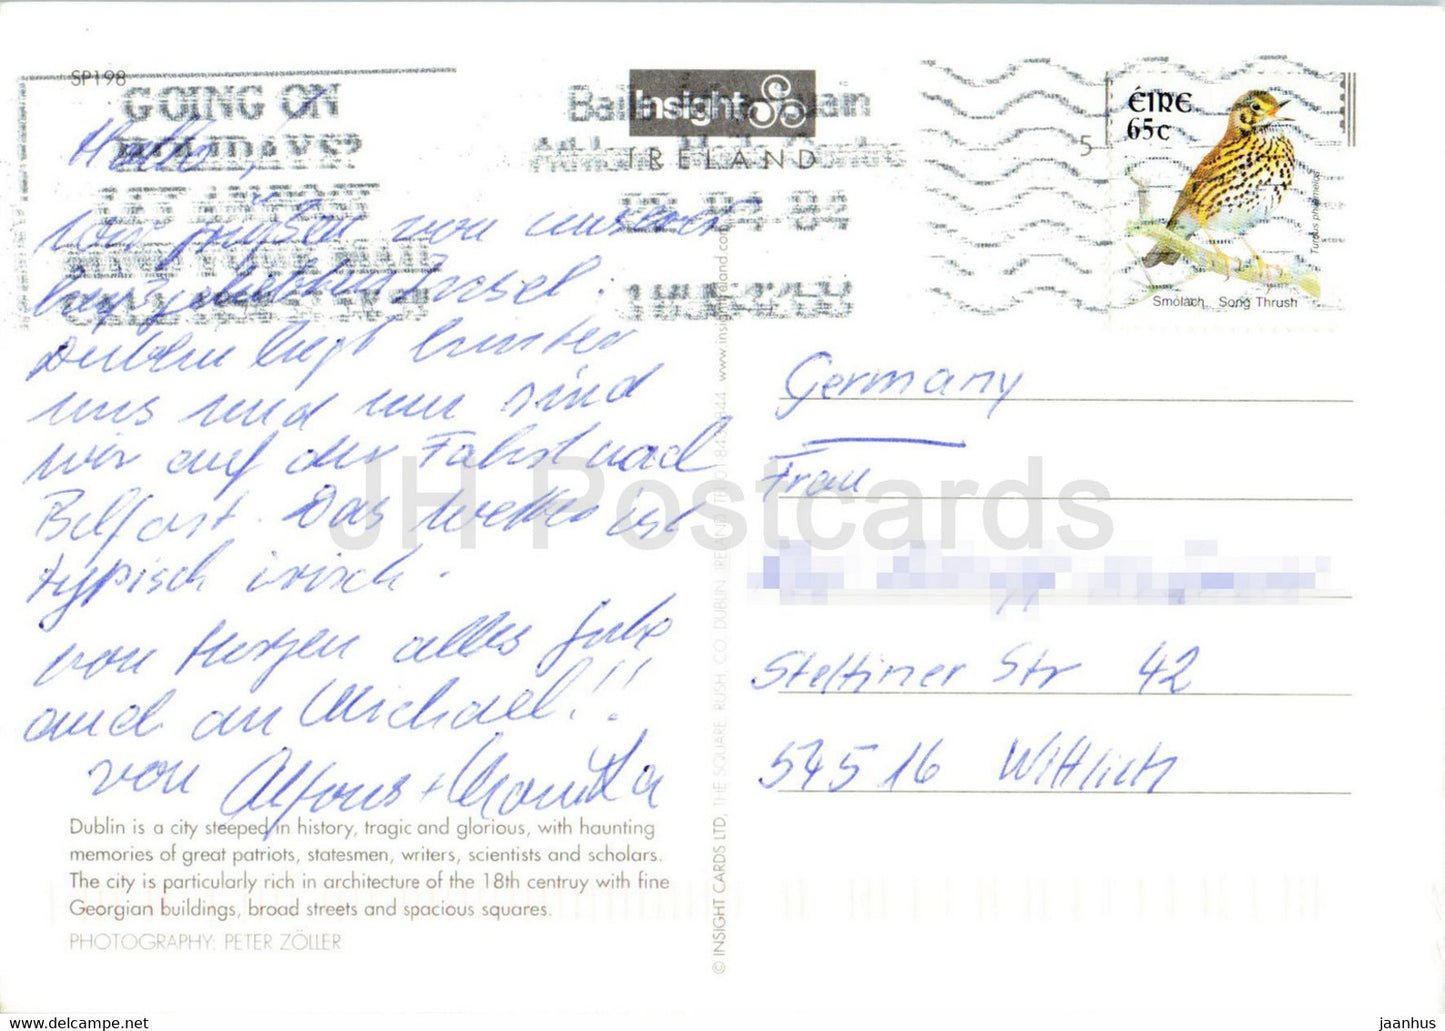 SP198
GOING ON
HOLIDAYS?
LET ANPOST
MIND YOUR MAIL
Insight
IRELAND
5
ÉIRE
65c
Turdus philomelos
Smólach Song Thrush
Hallo,
wir grüßen von unserer
Insel.
Dublin liegt hinter
uns und nun sind
wir auf der Fahrt nach
Belfast. Das Wetter ist
typisch irisch.
von Herzen alles Gute
auch an Michael!!
von Alfons + Monika
Germany
Frau
Stettiner Str 42
54516 Wittlich
JH Postcards
Dublin is a city steeped in history, tragic and glorious, with haunting
memories of great patriots, statesmen, writers, scientists and scholars.
The city is particularly rich in architecture of the 18th centruy with fine
Georgian buildings, broad streets and spacious squares.
PHOTOGRAPHY: PETER ZÖLLER
© INSIGHT CARDS LTD, THE SQUARE, RUSH, CO. DUBLIN, IRELAND. www.insightireland.com
www.hipstamp.com/store/jaanhus